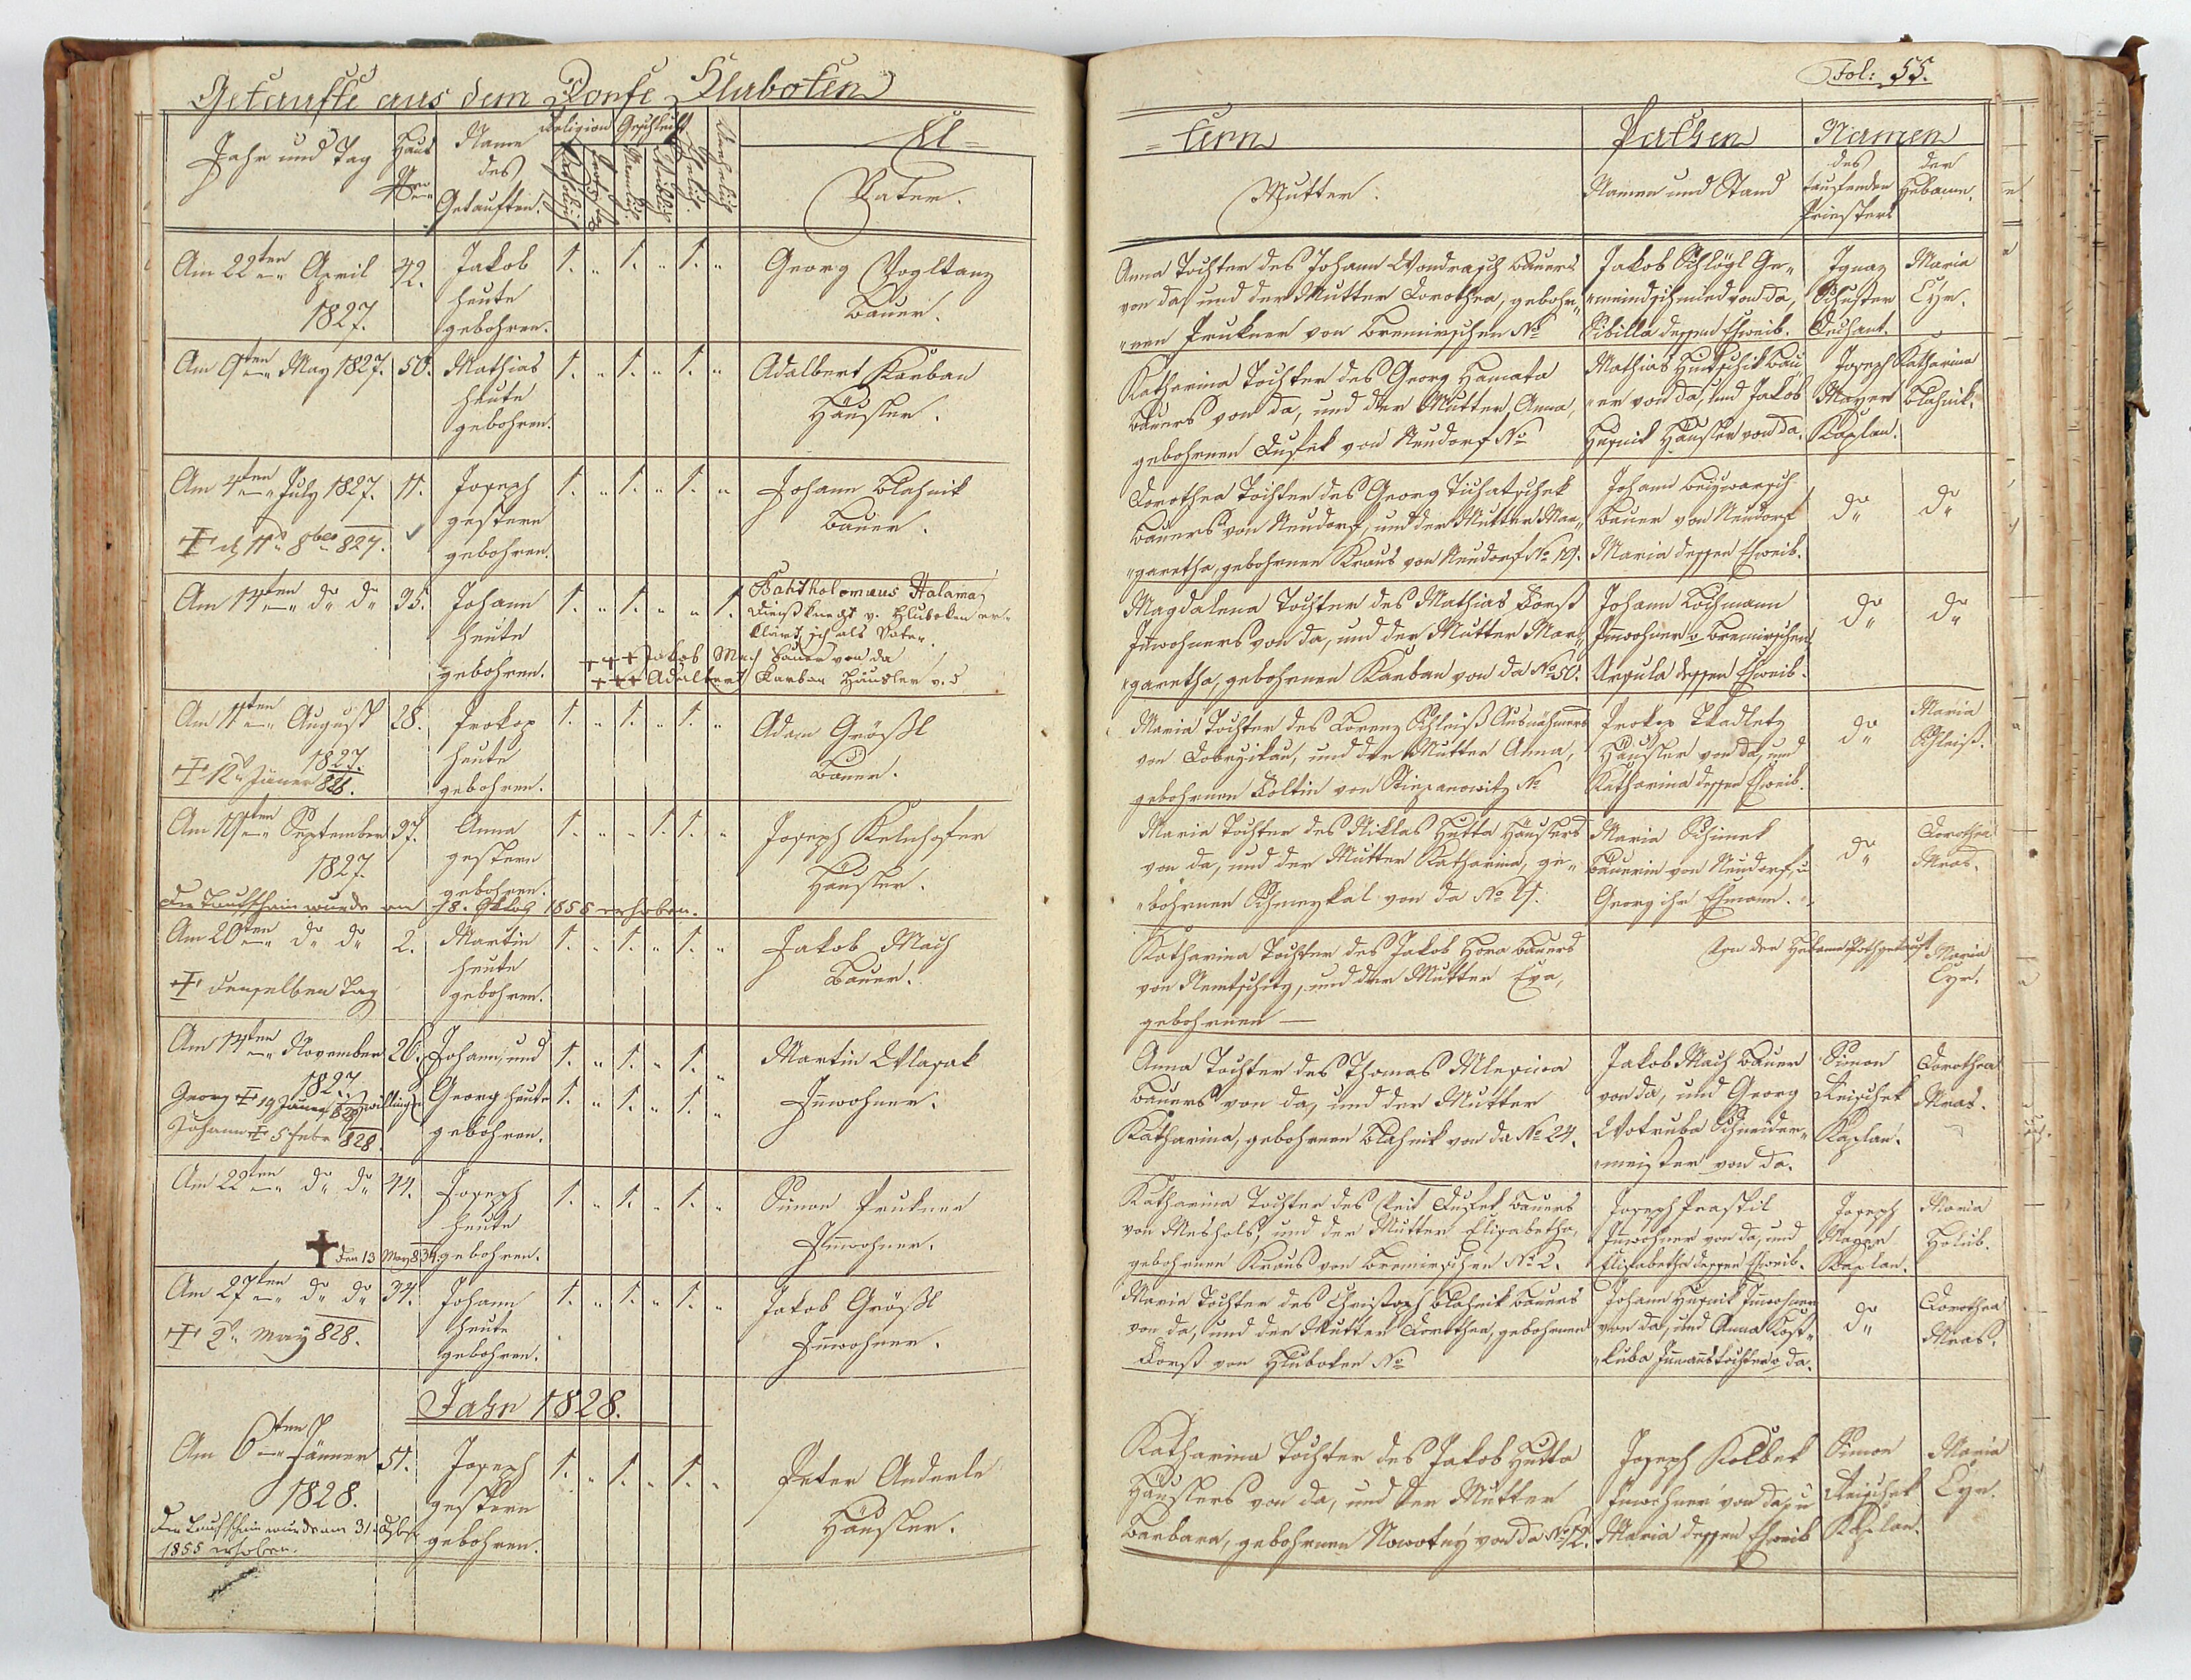 Getaufte aus dem Dorfe Hluboken
Fol: 55.
Jahr und Tag
Haus Nro
Name des Getauften
Religion
Geschlecht
Katholisch
Männlich
Weiblich
Ehelich
Unehelich
El=
=tern
Vater.
Mutter.
Pathen
Namen und Stand
Namen
des taufenden Priesters
der Hebame.
Am 22ten April
1827.
42.
Jakob
heute
gebohren.
1. " 1. " 1. "
Georg Vogltanz
Bauer.
Anna Tochter des Johann Wondrasch Bauers
von da, und der Mutter Dorothea, gebohr=
=nen Prukner von Bremirschen No
Jakob Schlögl Ge=
=meindschmied von da,
Sibilla dessen Eheweib.
Ignaz
Schuster
Dechant.
Maria
Eyr.
Am 9ten May 1827.
50.
Mathias
heute
gebohren.
1. " 1. " 1. "
Adalbert Karban
Häusler.
Katharina Tochter des Georg Hamata
Bauers von da, und der Mutter Anna,
gebohrnen Dusek von Neudorf No
Mathias Hutschik Bau=
=er von da, und Jakob
Husnik Häusler von da.
Joseph
Mayer
Kaplan.
Katharina
Blahnik.
Am 4ten July 1827.
+ d 11n 8ber 827.
11.
Joseph
gestern
gebohren.
1. " 1. " 1. "
Johann Blahnik
Bauer.
Dorothea Tochter des Georg Tichatschek
Bauers von Neudorf, und der Mutter Mar=
=garetha, gebohrnen Kraus von Neudorf No 19.
Johann
Bauer von Neudorf
Maria dessen Eheweib.
do
do
Am 14ten do do
35.
Johann
heute
gebohren.
1. " 1. " " 1.
Bahtholomaus Halama
Dienstknecht v. Hluboken er=
klärt sich als Vater.
+++ Jakob Mach Bauer von da
+++ Adalbert Karban Häusler v. d
Magdalena Tochter des Mathias Forst
Innwohners von da, und der Mutter Mar=
=garetha, gebohrnen Karban von da No 50.
Johann Kochmann
Innwohner v Bremirschen
Ursula dessen Eheweib.
do
do
Am 11ten August
1827.
+ 12n Jäner 828.
28.
Prokop
heute
gebohren.
1. " 1. " 1. "
Adam Größl
Bauer.
Maria Tochter des Lorenz Schleiß Ausnähmers
von Dobrzikau, und der Mutter Anna,
gebohrnen Koltin von Stiepanowitz No
Prokop Tkadletz
Häusler von da, und
Katharina dessen Eheweib.
do
Maria
Schleiß.
Am 19ten September
1827.
Der Taufschein wurde am 18. Oktob 1855 erhoben.
37.
Anna
gestern
gebohren.
1. " " 1. 1. "
Joseph Kelnhofer
Häusler.
Maria Tochter des Niklas Hutta Häuslers
von da, und der Mutter Katharina, ge=
=bohrnen Schmeykal von da No 4.
Maria Schimek
Bäuerin von Neudorf, u
Georg ihr Ehmann.
do
Dorothea
Mras.
Am 20ten do do
+ denselben Tag
2.
Martin
heute
gebohren.
1. " 1. " 1. "
Jakob Mach
Bauer.
Katharina Tochter des Jakob Hora Bauers
von Nemtschitz, und der Mutter Eva,
gebohrnen —
Von der Hebame Nothgetauft
Maria
Eyr.
Am 14ten November
1827.
Zwillinge
Georg + 19 Jäner 828
Johann + 5 Febr 828.
26.
Johann, und
Georg heute
gebohren.
1. " 1. " 1. "
1. " 1. " 1. "
Martin Wlasak
Innwohner.
Anna Tochter des Thomas
Bauers von da, und der Mutter
Katharina, gebohrnen Blahnik von da No 24.
Jakob Mach Bauer
von da, und Georg
Wotruba Schneider=
=meister von da.
Simon
Reischek
Kaplan.
Dorothea
Mras.
Am 22ten do do
+ den 13 May 834.
44.
Joseph
heute
gebohren.
1. " 1. " 1. "
Simon Prukner
Innwohner.
Katharina Tochter des Veit Dusek Bauers
von Mesholz, und der Mutter Elisabetha,
gebohrnen Kraus von Bremirschen No 2.
Joseph Praskil
Innwohner von da, und
Elisabetha dessen Eheweib.
Joseph
Mayer
Kaplan.
Maria
Holub.
Am 27ten do do
+ 2n May 828.
34.
Johann
heute
gebohren.
1. " 1. " 1. "
Jakob Größl
Innwohner.
Maria Tochter des Christoph Blahnik Bauers
von da, und der Mutter Dorothea, gebohrnen
Forst von Hluboken No
Johann Husnik Innwohner
von da, und Anna Kost=
=luba Innmannstochter v da.
do
Dorothea
Mras.
Jahr 1828.
Am 6ten Jänner
1828.
Der Taufschein wurde am 31. Dzber
1855 erhoben.
51.
Joseph
gestern
gebohren.
1. " 1. " 1. "
Peter Anderle
Häusler.
Katharina Tochter des Jakob Hutta
Häuslers von da, und der Mutter
Barbara, gebohrnen Nowotny von da No 12.
Joseph Kolbek
Innwohner von da, u
Maria dessen Eheweib
Simon
Reischek
Kaplan.
Maria
Eyr.